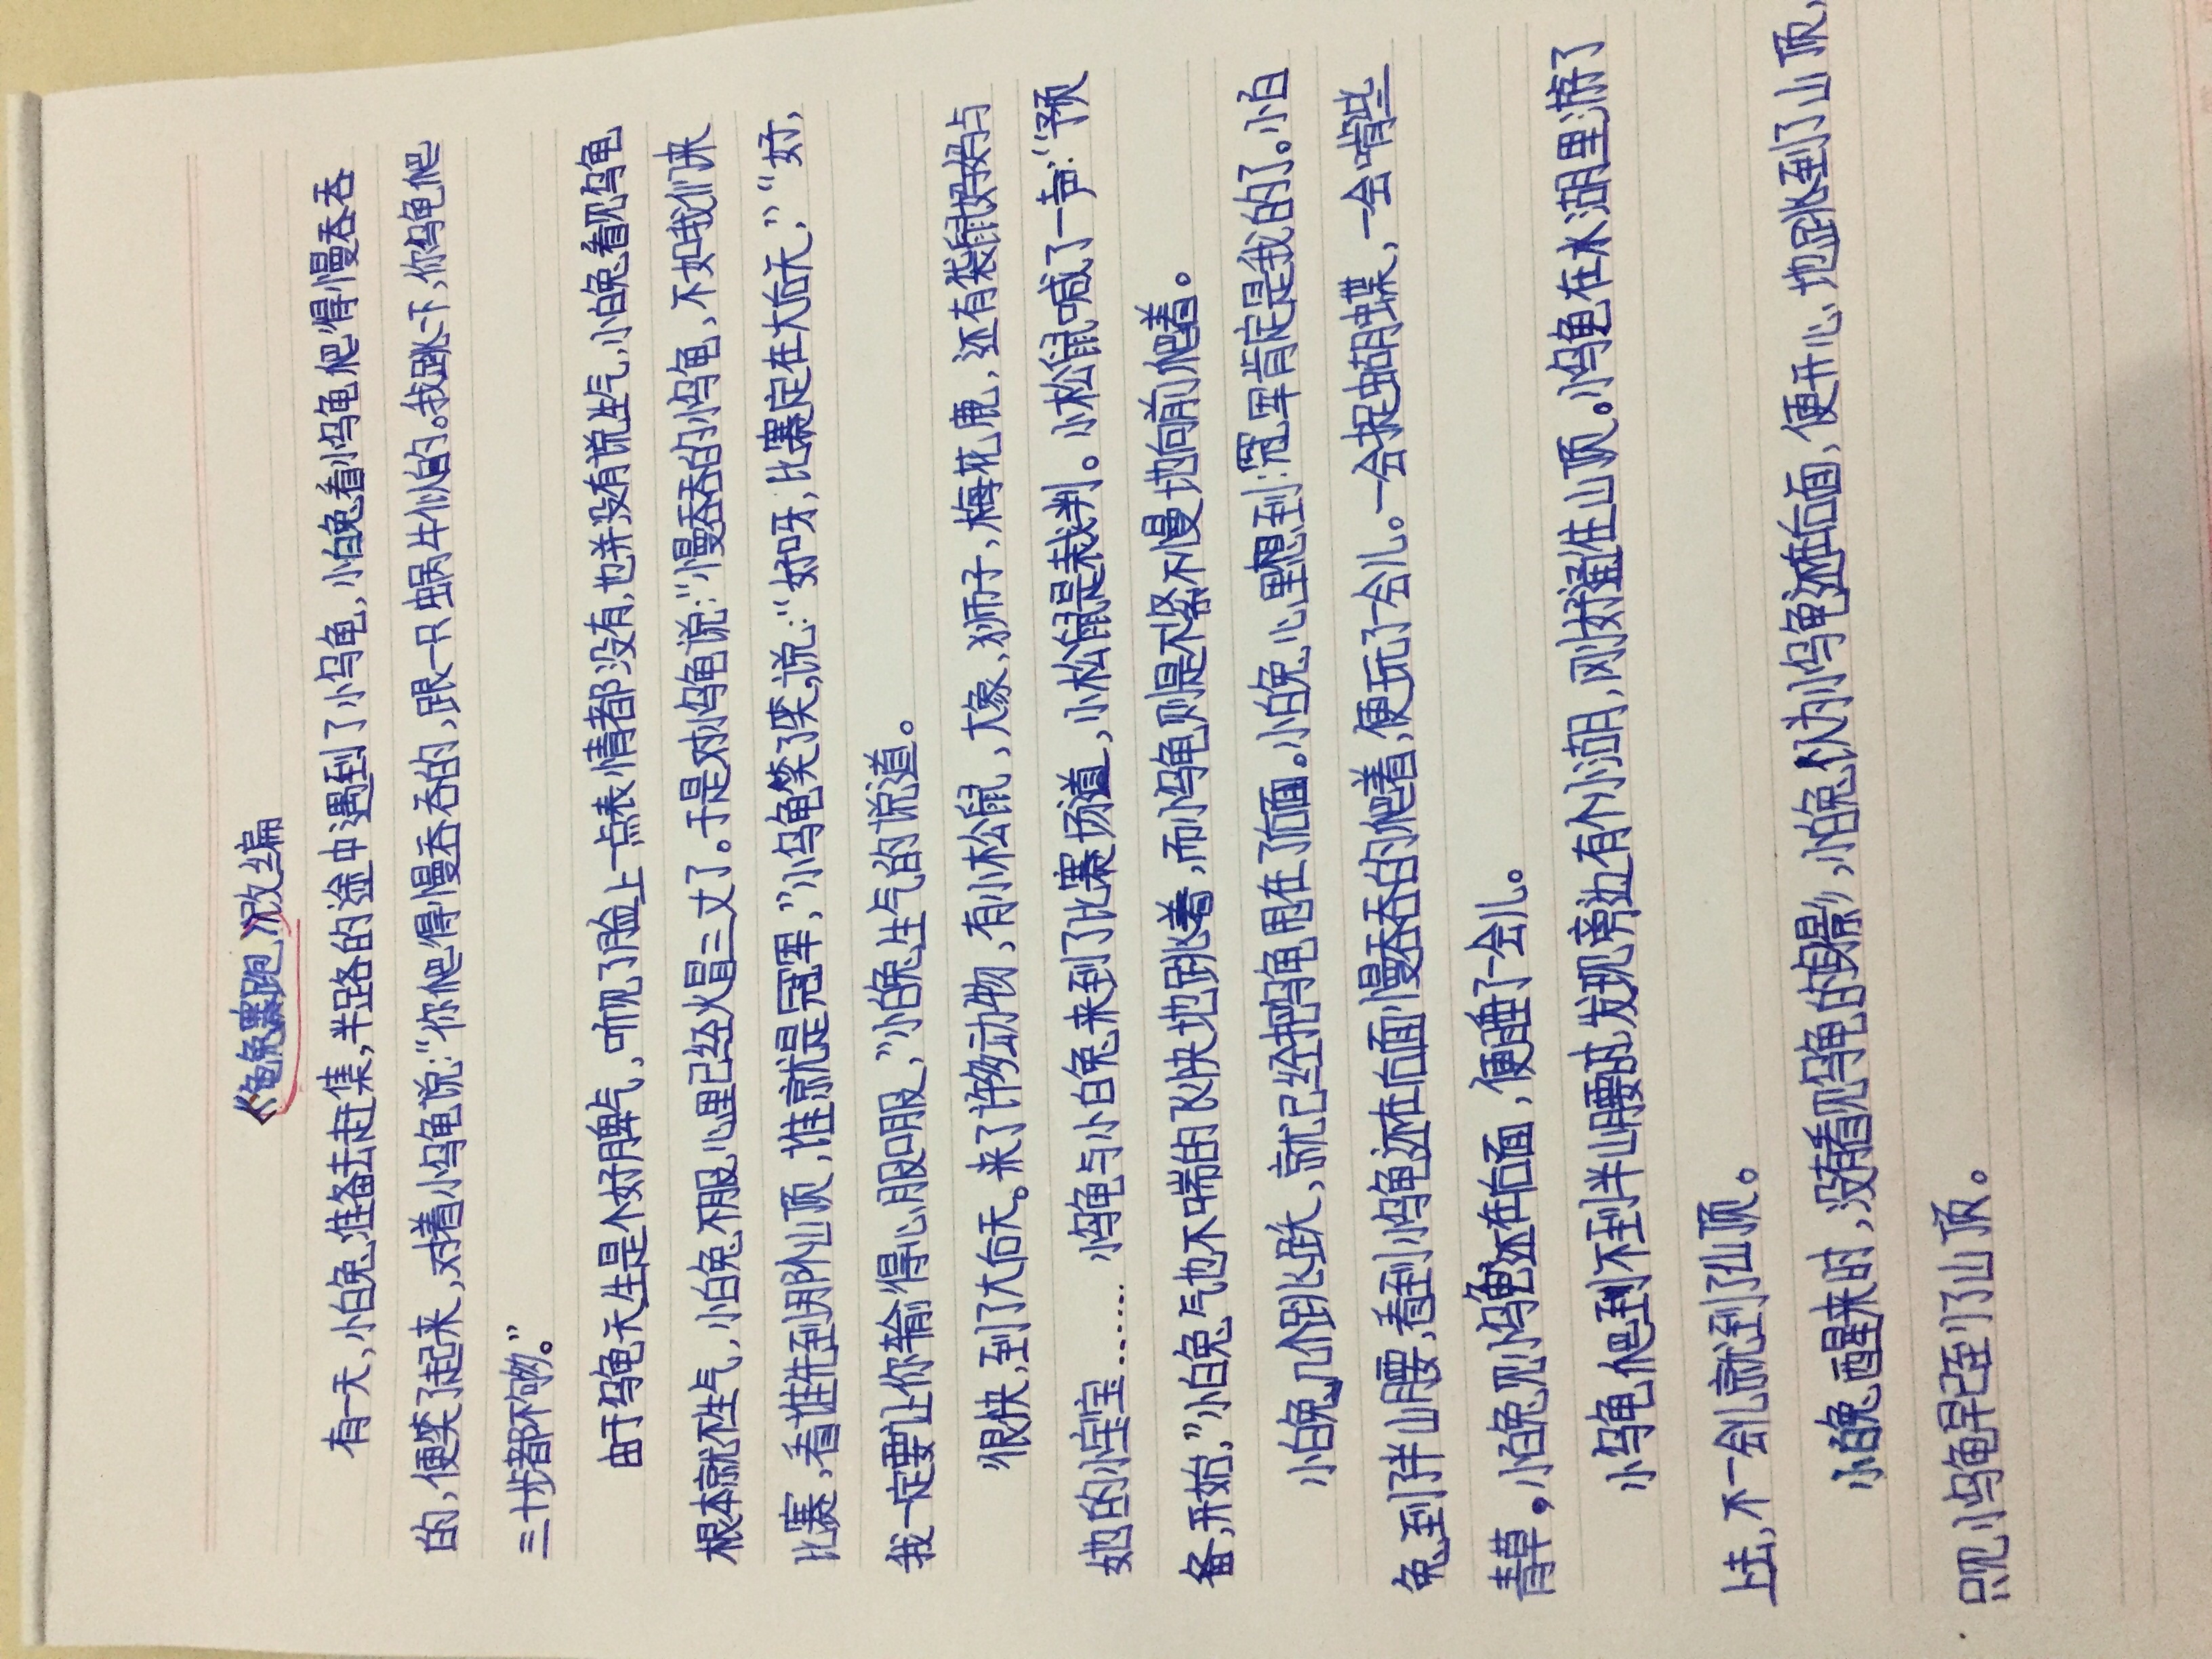 《龟兔赛跑》改编
有一天,小白兔准备去赶集,半路的途中遇到了小乌龟,小白兔看小乌龟爬得慢吞吞
的,便笑了起来,对着小乌龟说:“你爬得慢吞吞的,跟一只蜗牛似的。我跳一下,你乌龟爬
三十步都不够。”
由于乌龟天生是个好脾气,吻了脸上一点表情都没有,也并没有说生气,小白兔看见乌龟
根本就不生气,小白兔不服,心里已经火冒三丈了。于是对小乌龟说:“慢吞吞的小乌龟,不如我们来
比赛,看谁先到那个山顶,谁就是冠军,”小乌龟笑了笑,说:“好呀,比赛定在大后天,”“好,
我一定要让你输得心服口服,”小白兔生气的说道。
很快,到了大后天。来了许多动物,有小松鼠,大象,狮子,梅花鹿,还有袋鼠妈妈与
她的小宝宝……小乌龟与小白兔来到了比赛场道,小松鼠是裁判。小松鼠喊了一声:“预
备,开始,”小白兔气也不喘的飞快地跳着,而小乌龟则是不紧不慢地向前爬着。
小白兔几个跳跃,就已经把乌龟甩在了后面。小白兔心里想到:冠军肯定是我的了。小白
兔到了半山腰,看到小乌龟还在后面慢吞吞的爬着,便玩了一会儿。一会捉蝴蝶,一会啃些
青草。小白兔见小乌龟还在后面,便睡了一会儿。
小乌龟爬到不到半山腰时,发现旁边有个小湖,刚好通往山顶。小乌龟在水湖里游了
上去,不一会儿就到了山顶。
小白兔醒来时,没有看见乌龟的身影,小白兔仍以为小乌龟还在后面,便开心地跳到了山顶,
只见小乌龟早到了山顶。